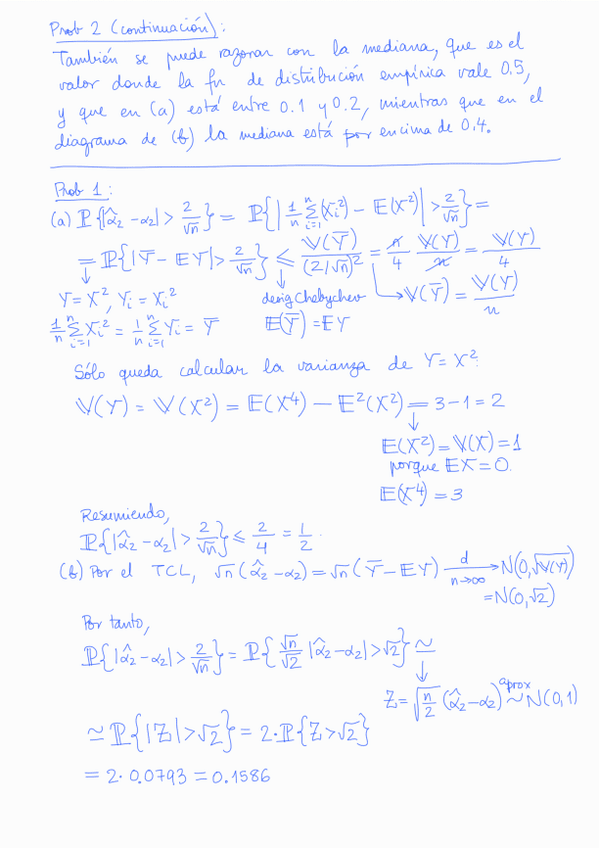 Prob 2 (continuación):
También se puede razonar con la mediana, que es el
valor donde la fn de distribución empírica vale 0.5,
y que en (a) está entre 0.1 y 0.2, mientras que en el
diagrama de (b) la mediana está por encima de 0.4.
Prob 1:
(a) ℙ{|α̂₂-α₂| > 2/√n} = ℙ{|1/n Σᵢ₌₁ⁿ(Xᵢ²) - 𝔼(X²)| > 2/√n} =
= ℙ{|Ȳ - EY| > 2/√n} ≤ 𝕍(Ȳ)/(2/√n)² = n/4 𝕍(Y)/n = 𝕍(Y)/4
Y = X², Yᵢ = Xᵢ² desig Chebychev → 𝕍(Ȳ) = 𝕍(Y)/n
1/n Σᵢ₌₁ⁿ Xᵢ² = 1/n Σᵢ₌₁ⁿ Yᵢ = Ȳ 𝔼(Ȳ) = EY
Sólo queda calcular la varianza de Y = X²:
𝕍(Y) = 𝕍(X²) = 𝔼(X⁴) - 𝔼²(X²) = 3 - 1 = 2
↓
𝔼(X²) = 𝕍(X) = 1
porque EX = 0.
𝔼(X⁴) = 3
Resumiendo,
ℙ{|α̂₂-α₂| > 2/√n} ≤ 2/4 = 1/2.
(b) Por el TCL, √n(α̂₂-α₂) = √n(Ȳ - EY) d→ n→∞ N(0,√𝕍(Y))
= N(0,√2)
Por tanto,
ℙ{|α̂₂-α₂| > 2/√n} = ℙ{√n/√2 |α̂₂-α₂| > √2} ≃
↓
Z = √(n/2) (α̂₂-α₂) aprox ~ N(0,1)
≃ ℙ{|Z| > √2} = 2·ℙ{Z > √2}
= 2·0.0793 = 0.1586